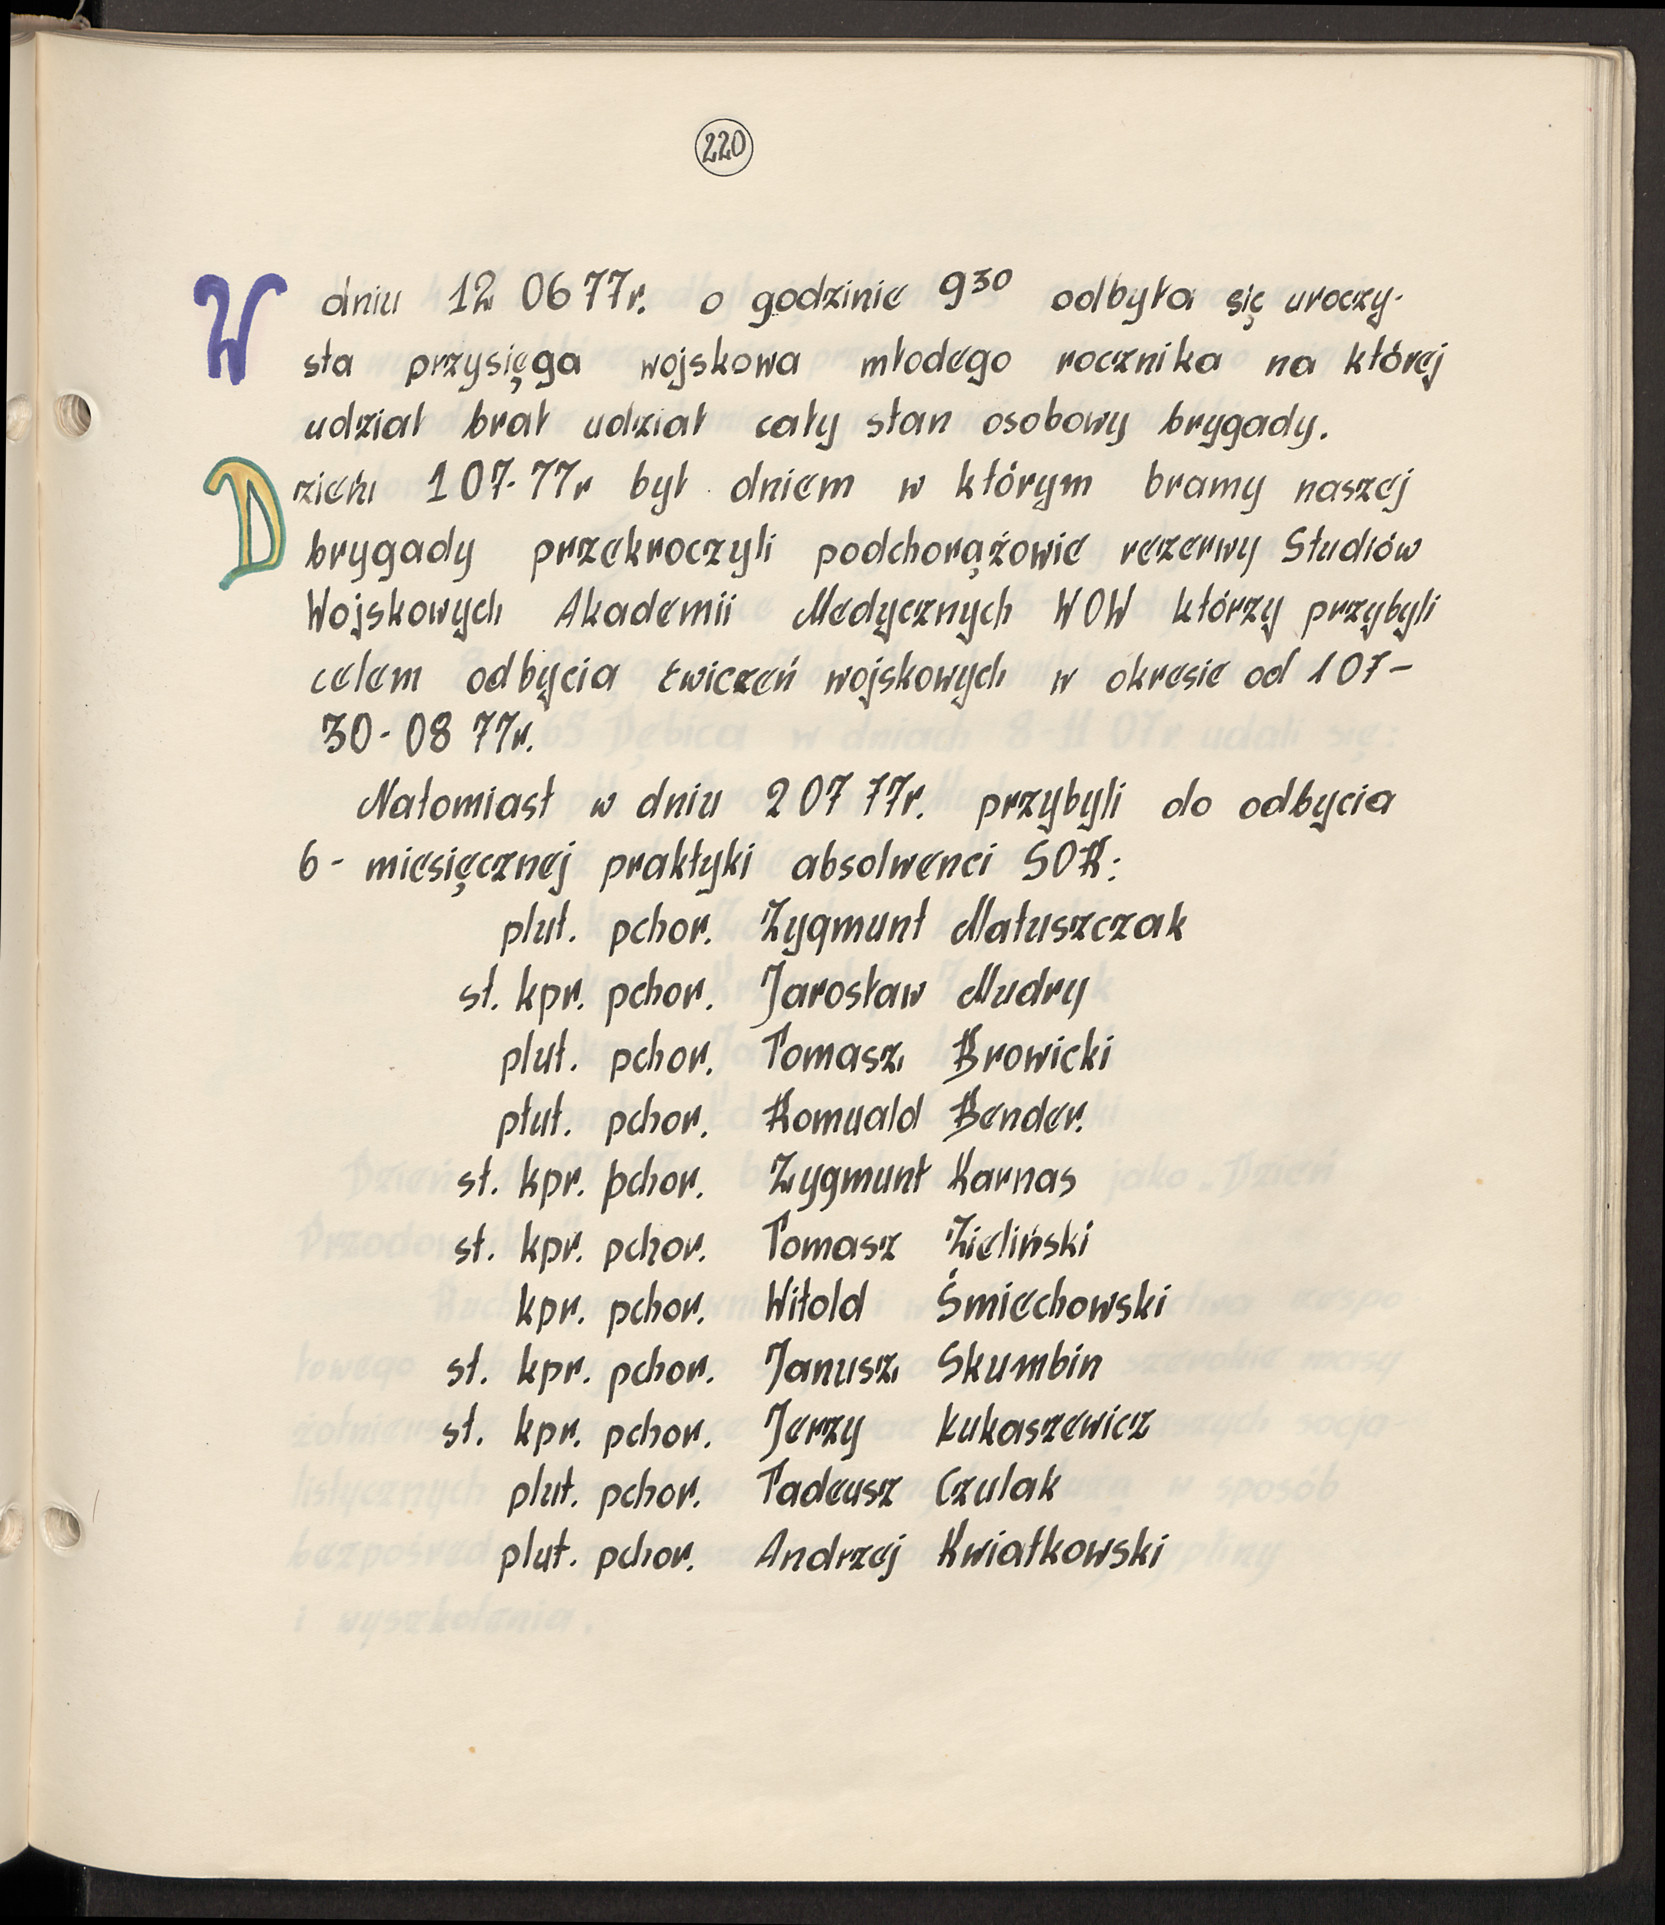 220
W dniu 12 06 77r. o godzinie 9³⁰ odbyła się uroczy-
sta przysięga wojskowa młodego rocznika na której
udział brał udział cały stan osobowy brygady.
Dzień 1 07-77r był dniem w którym bramy naszej
brygady przekroczyli podchorążowie rezerwy Studiów
Wojskowych Akademii Medycznych WOW którzy przybyli
celem odbycia ćwiczeń wojskowych w okresie od 1 07-
30-08 77r.
Natomiast w dniu 2 07 77r. przybyli do odbycia
6-miesięcznej praktyki absolwenci SOR:
plut. pchor. Zygmunt Matuszczak
st. kpr. pchor. Jarosław Mudry
plut. pchor. Tomasz Browicki
plut. pchor. Romuald Bender.
st. kpr. pchor. Zygmunt Karnas
st. kpr. pchor. Tomasz Zieliński
kpr. pchor. Witold Śmiechowski
st. kpr. pchor. Janusz Skumbin
st. kpr. pchor. Jerzy Łukaszewicz
plut. pchor. Tadeusz Czulak
plut. pchor. Andrzej Kwiatkowski